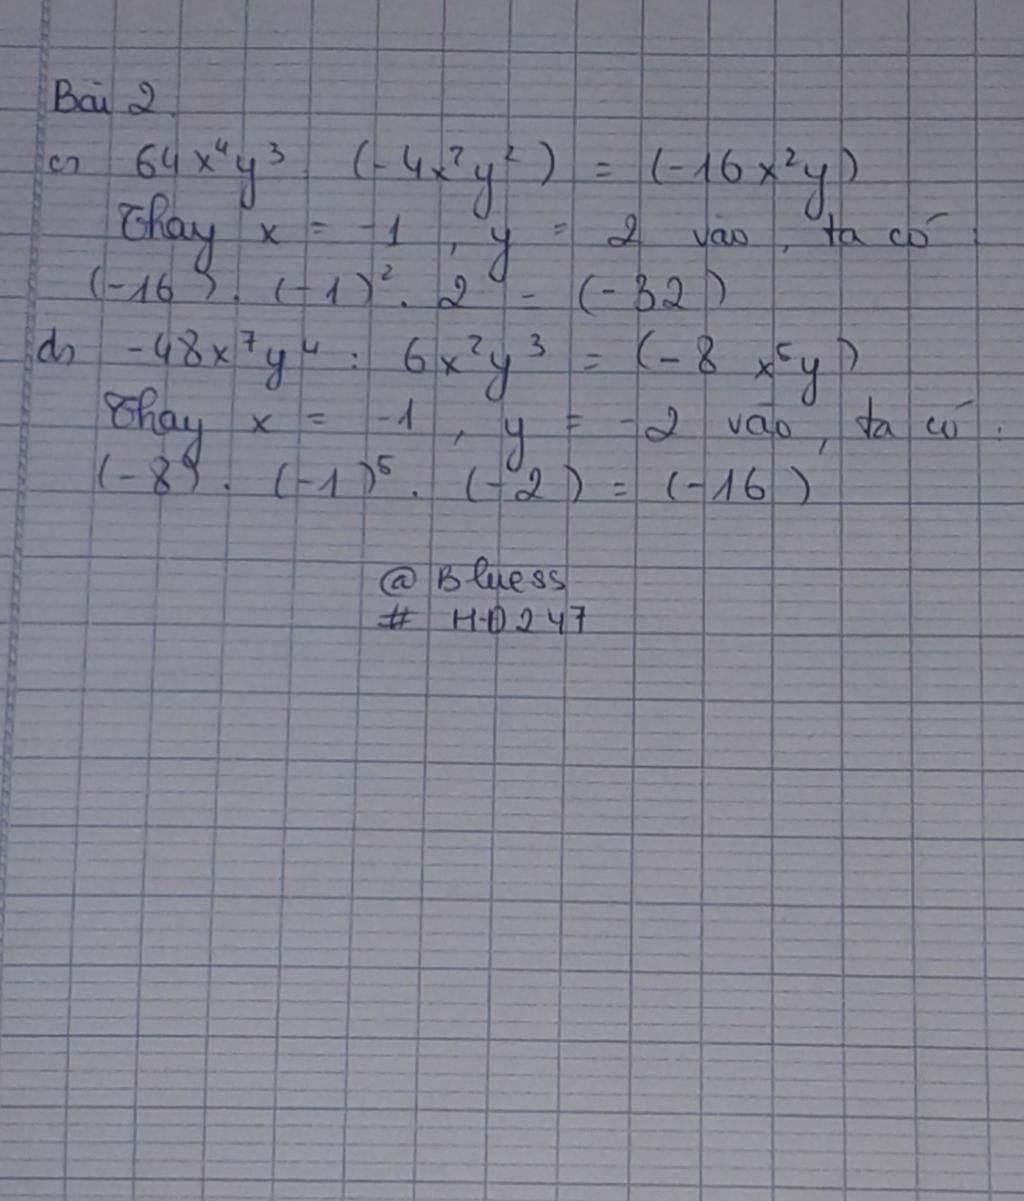 Bài 2
c, 64x⁴y³ (-4x²y²) = (-16x²y)
Thay x = -1, y = 2 vào, ta có
(-16). (-1)². 2 = (-32)
d, -48x⁷y⁴ : 6x²y³ = (-8 x⁵y)
Thay x = -1, y = -2 vào, ta có:
(-8). (-1)⁵. (-2) = (-16)
@Bluess
# HD247